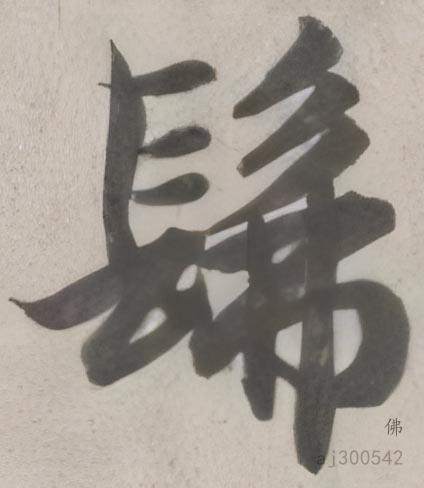 髴
佛
aj300542